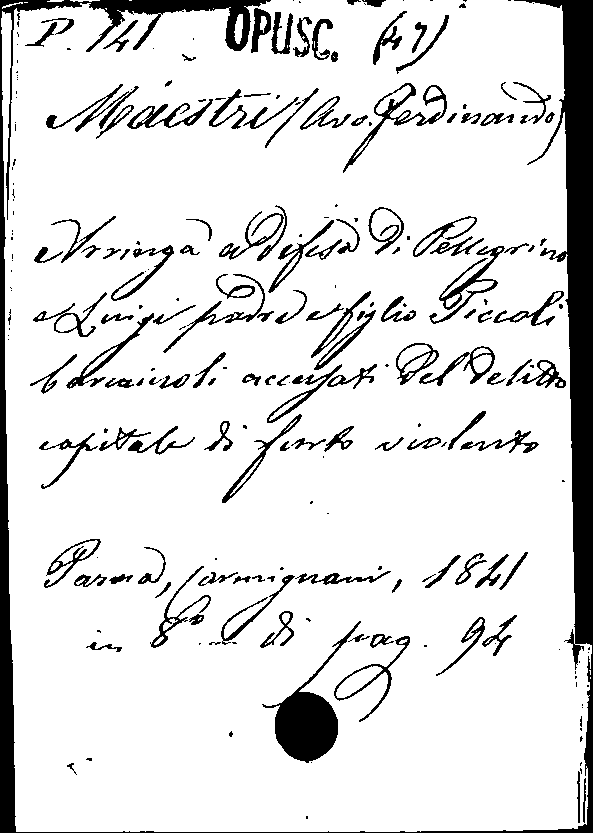 P. 141 OPUSC. (47)
Maestri (Avv. Ferdinando)
Arringa a difesa di Pellegrino
e Luigi padre e figlio Piccoli
barcaiuoli accusati del delitto
capitale di furto violento
Parma, Carmignani, 1841
in 8º di pag. 94